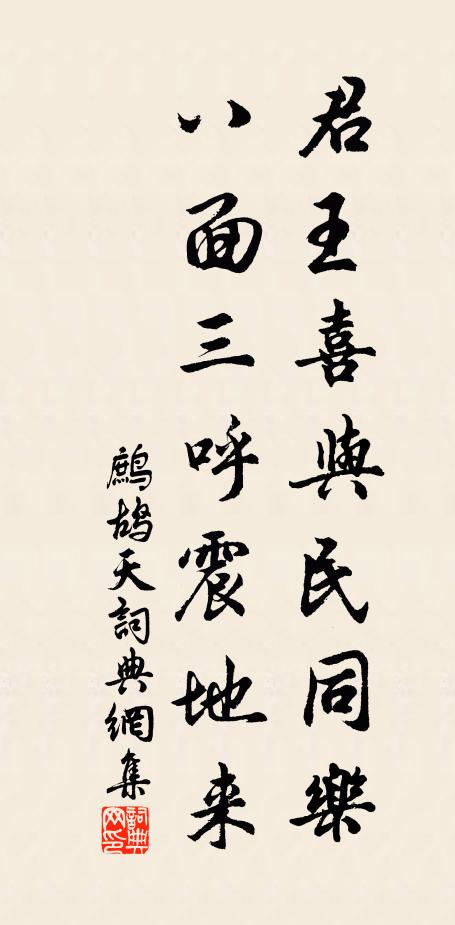 君王喜與民同樂
八面三呼震地来
鷓鴣天詞典網集
詞典网印